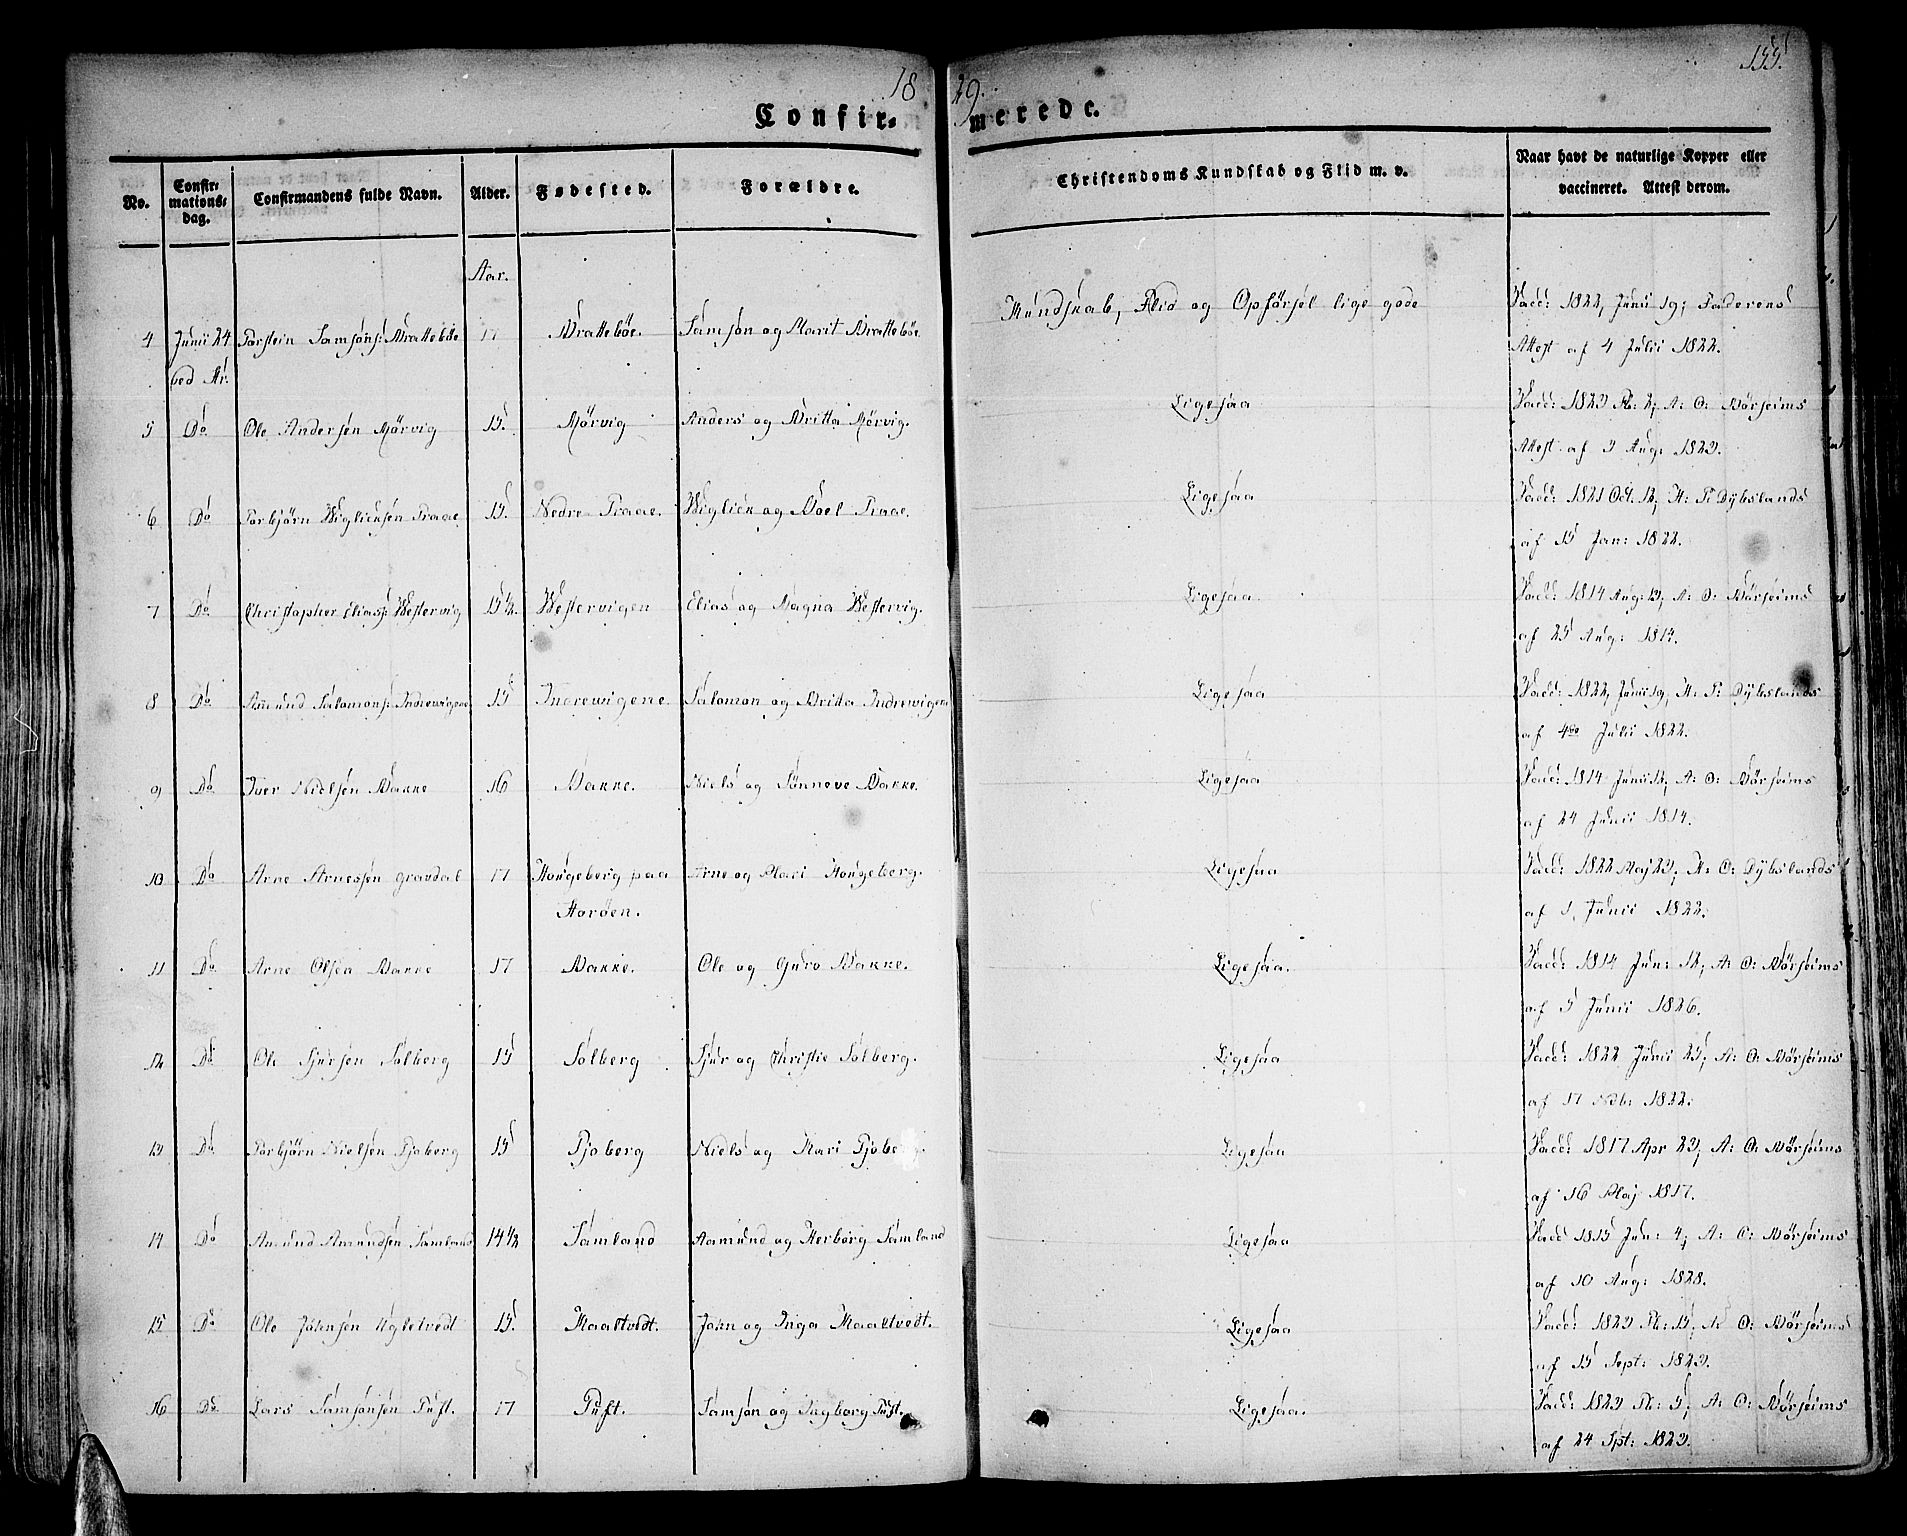 18 29. 155.
Confir- merede.
No. Confir-mations-dag. Confirmandens fulde Navn. Alder. Fødested. Forældre. Christendoms Kundskab og Flid m. v. Naar havt de naturlige Kopper eller vaccineret. Attest derom.
Aar.
4 Junii 24 Torstein Samsøns: Brattebøe 17 Brattebøe. Samsøn og Marit Brattebøe Kundskab, Flid og Opførsel lige gode Vacc: 1822, Junii 19; Faderens
ved Kr. Attest af 4 Julii 1822.
5 Do Ole Andersen Mørvig 15. Mørvig Anders og Britta Mørvig. Ligesaa Vacc: 1823 2, A: O: Børseims
Attest af 3 Aug: 1823.
6 Do Torbjørn Wiglicksen Traae 15. Nedre Traae. Wiglick og Boel Traae. Ligesaa Vacc: 1821 Oct. 12, H: T: Dybslands
af 15 Jan: 1822.
7 Do Christopher Elias: Westervig 15½. Westervigen Elias og Magna Westervig. Ligesaa Vacc: 1814 Aug: A: O: Børseims
af 25 Aug: 1814.
8 Do Amund Salomons: Indrevigene 15 Indrevigene Salomon og Britta Indrevigene Ligesaa Vacc: 1822, Junii 19, H: T: Dybslands
af 4de Julii 1822.
9 Do Iver Nielsen Bakke 16 Bakke. Niels og Sønneve Bakke. Ligesaa Vacc: 1814 Junii 12, A: O: Børseims
af 24 Junii 1814.
10 Do Arne Arnesen Gravdal 17 Hougeberg paa Arne og Mari Hougeberg. Ligesaa Vacc: 1822 Maj 23, H: O: Dybslands
Horøen. af 1, Junii 1822.
11 Do Arne Olsen Bakke 17 Bakke. Ole og Guro Bakke. Ligesaa. Vacc: 1814 Jun: 12, A: O: Børseims
af 5 Junii 1826.
12 Do Ole Sjursen Solberg 15 Solberg Sjur og Christie Solberg. Ligesaa Vacc: 1822 Junii 25, A: O: Børseims
af 17 1822.
13 Do Torbjørn Nielsen Tjoberg 15 Tjoberg Niels og Kari Tjoberg. Ligesaa Vacc: 1817 Apr 23, A: O: Børseims
af 16 Maj 1817.
14 Do Amund Amundsen Samland 14½ Samland Aamund og Herborg Samland Ligesaa Vacc 1815 Jun: 4, A: O: Børseims
af 10 Aug: 1828.
15 Do Ole Johnsen 15. Maaltvedt. John og Inga Maaltvedt. Ligesaa Vacc: 1823 15, A: O: Børseims
af 15 Sept: 1823.
16 Do Lars Samsønsen Tuft. 17 Tuft. Samsøn og Ingborg Tuft. Ligesaa. Vacc: 1823 5, A: O: Børseims
af 24 Spt: 1823.